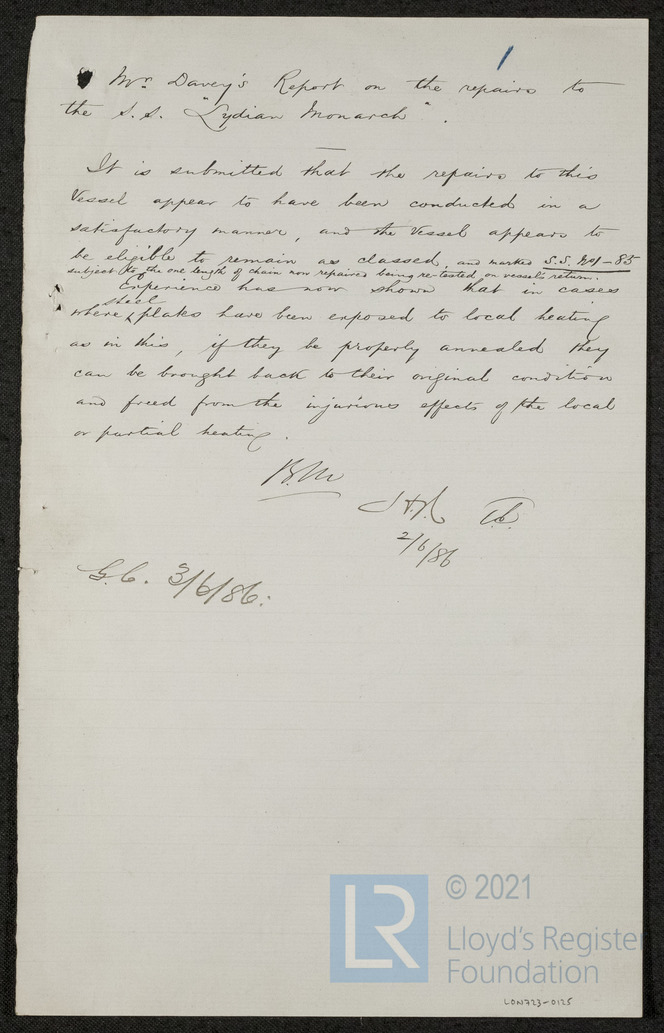 Mr. Davey's Report on the repairs to
the S.S. "Lydian Monarch".
It is submitted that the repairs to this
Vessel appear to have been conducted in a
satisfactory manner, and the Vessel appears to
be eligible to remain as classed, and marked S.S. No1-85
subject to the one length of chain now repaired being re-tested on vessel's return.
Experience has now shown that in cases
where steel plates have been exposed to local heating
as in this, if they be properly annealed they
can be brought back to their original condition
and freed from the injurious effects of the local
or partial heating.
B.M
2/6/86
G.C. 3/6/86.
LR
© 2021
Lloyd's Register
Foundation
LON723-0125